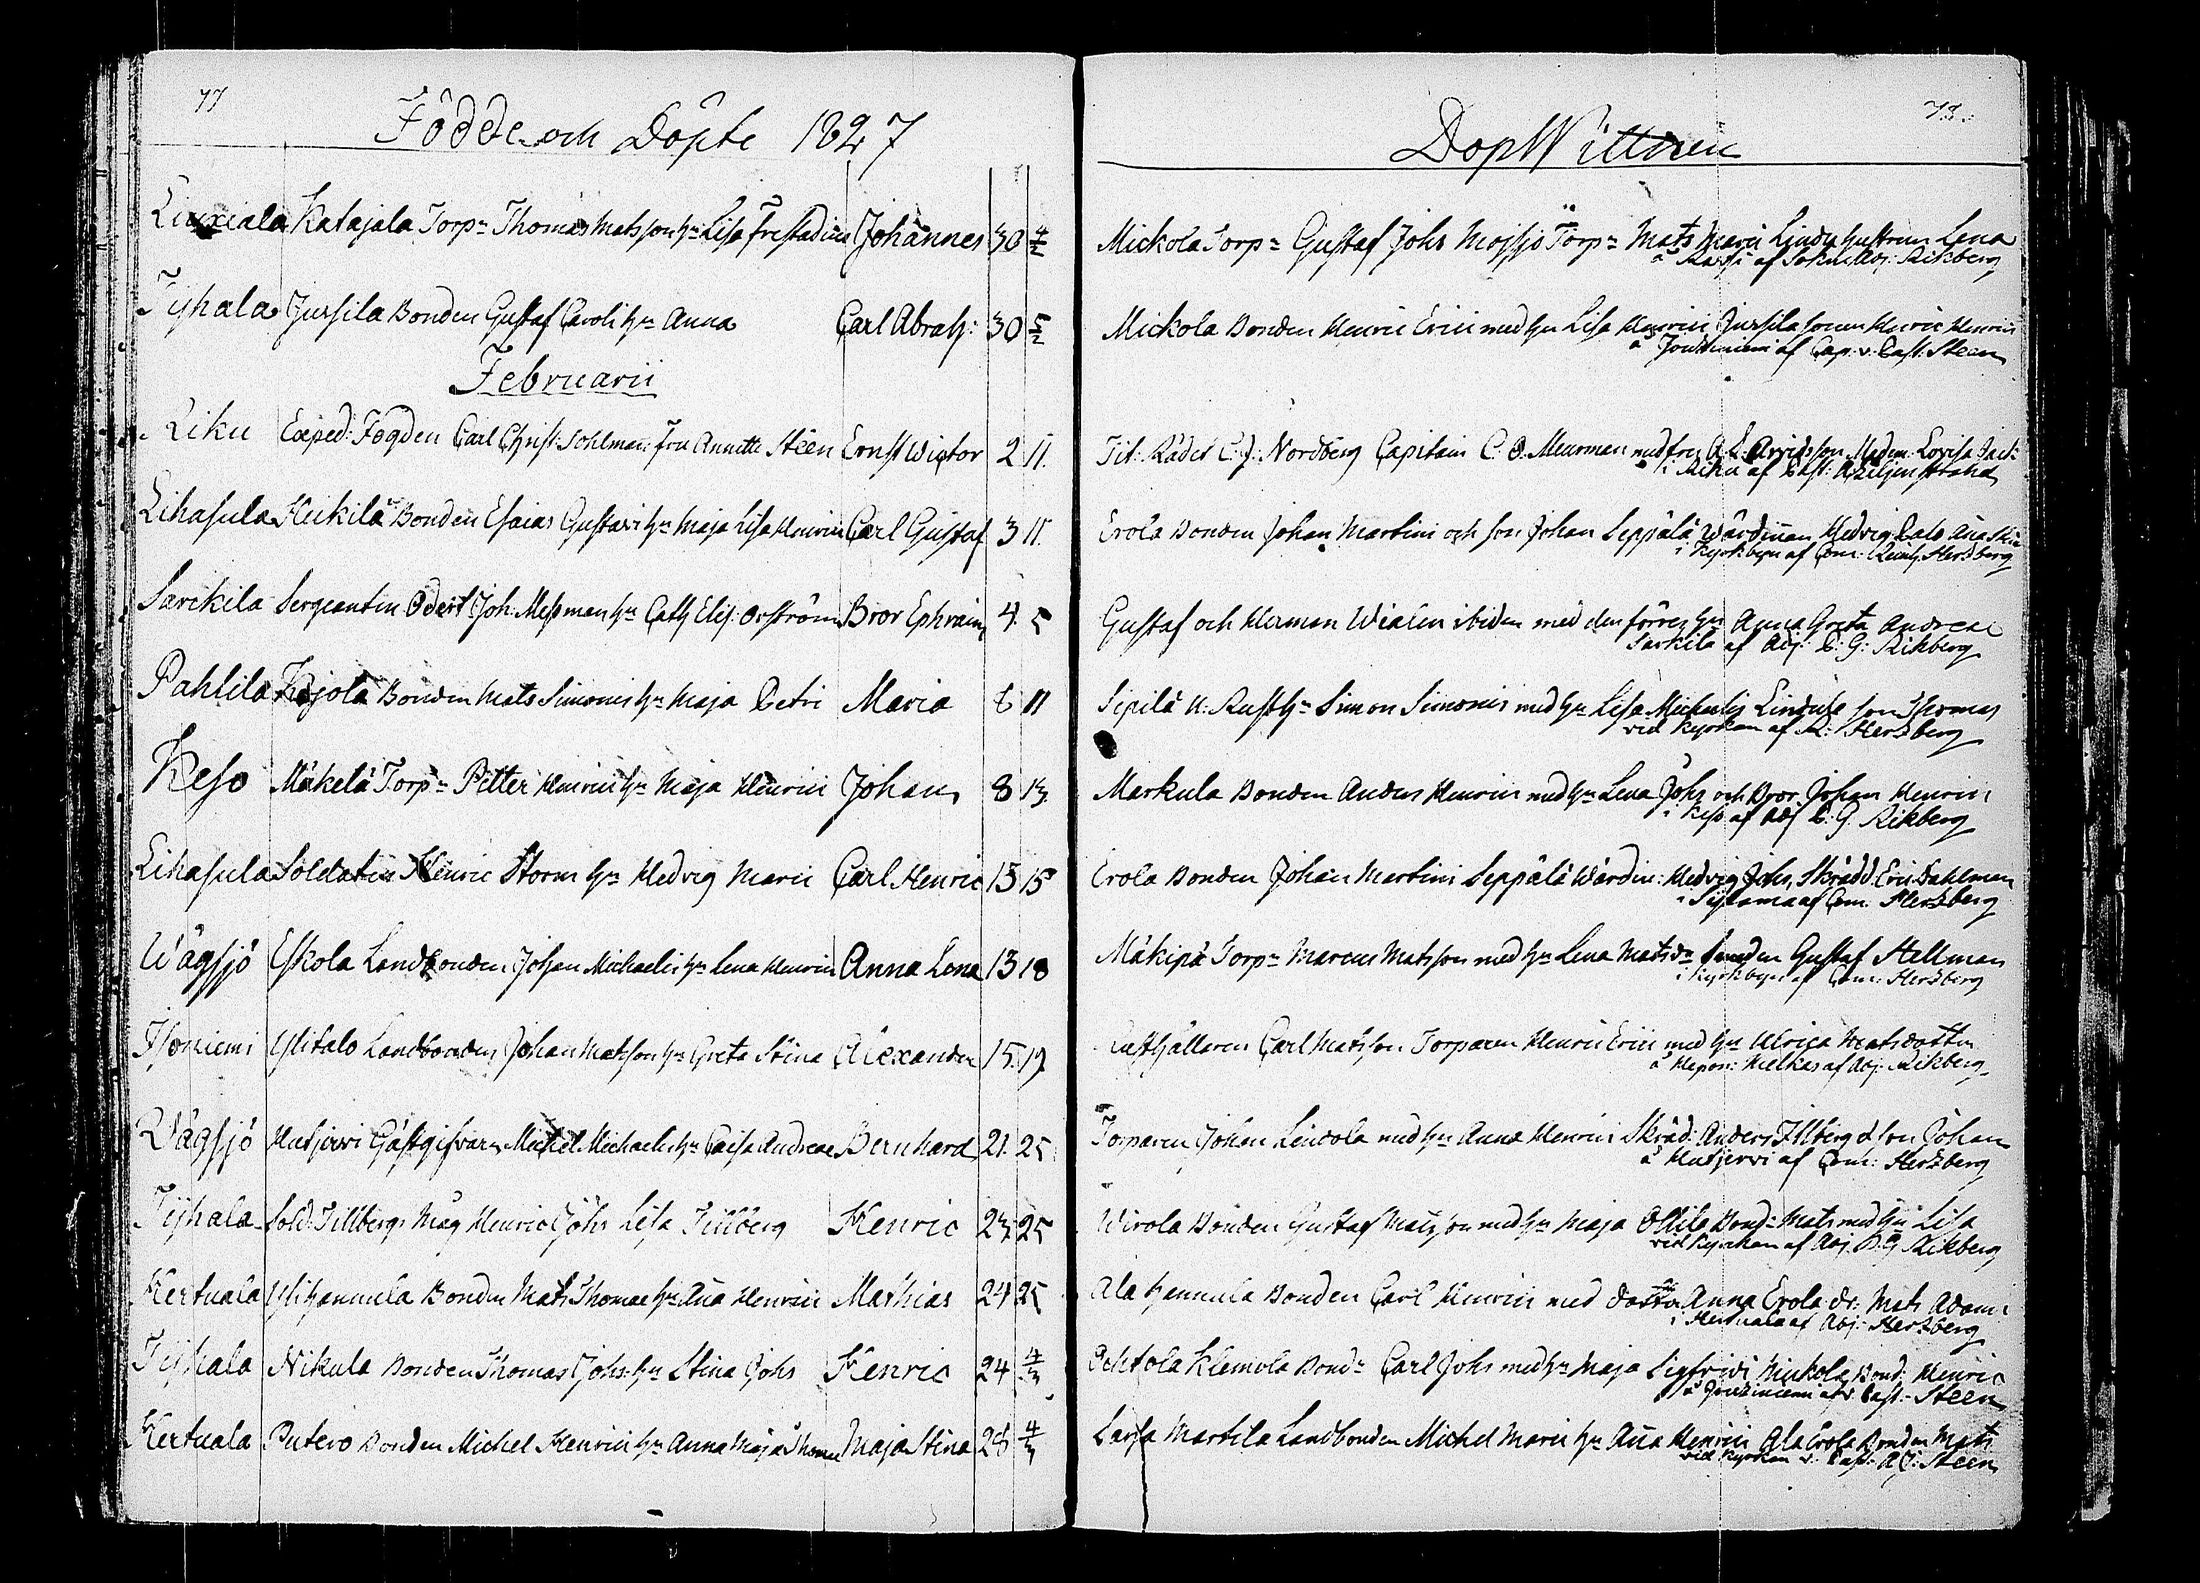 77
Födde och Döpte 1827
Liuxiala Katajala Torp:n Thomas Matsson h:u Lisa Johannes 30 4/2
Tyhala Jussila Bonden Gustaf Caroli h:u Anna Carl Abrah: 30 5/2
Februarii
Liku Exped: Fogden Carl Christ: Sohlman fru Annette Steen Ernst Wictor 2 11.
Lihasula Heikilä Bonden Esaias Gustavi h:u Maja Lisa Henrici Carl Gustaf 3 11.
Sarckila Sergeanten Joh: Messman h:u Cath Elis: Orström Bror Ephraim 4. 5
Pahlila Bonden Mats Simonis h:u Maja Petri Maria 8 11
Keso Mäkelä Torp:n Petter Henrici h:u Maja Henrici Johan 8 13.
Lihasula Soldaten Henric Storm h:u Hedvig Marci Carl Henric 13 15
Wägsjö Eskola Landbonden Johan Michaelis h:u Lena Henrici Anna Lena 13 18
Isoniemi Ylitalo Landbonden Johan Matsson h:u Greta Stina Alexander 15. 19.
Wägsjö Hutjerwi Gästgifvaren Michel Michaelis h:u Caisa Andreae Bernhard 21. 25
Tyhala Sold: Tillbergs Måg Henric Johs Lisa Tillberg Henric 23. 25
Kertuala Ylihannula Bonden Mats Thomae h:u Aña Henrici Mathias 24 25
Tyhala Nikula Bonden Thomas Johs: h:u Stina Johs Henric 24 4/3
Kertuala Putero Bonden Michel Henrici h:u Anna Maja Thomae Maja Stina 28 4/3
78.
DopWittnen
Mickola Torp:n Gustaf Johs Torp:n Mats Marci Lindu hustrun Lena
af Sokne Adj: Rikberg
Mickola Bonden Henric Erici med h:u Lisa Henrici Jussila sonen Henric Henrici
å Joutziniemi af Cap: v: Past: Steen
Tit: Rådet C: J: Nordberg Capitain C. O. Meurman med fru A. L. Arvidsson Lovisa
i Liku af Past: Liljenstrand
Erola Bonden Johan Martini och son Johan Seppälä Wärdinnan Hedvig
i Kyrkbyn af Com: Herzberg
Gustaf och Herman ibidem med den förres h:u Anna Greta Andreae
Sarkila af Adj: C: G: Rikberg
Sipilä Simon Simonis med h:u Lisa Michaelis son Thomas
vid Kyrkan af Herzberg
Markula Bonden Anders Henrici med h:u Lena Johs och Bror Johan Henrici
i Keso af Adj C: G: Rikberg
Erola Bonden Johan Martini Seppälä Wärdin: Hedvig Johs, Skrädd: Eric Dahlman
af Com: Herzberg
Mäkipä Torp:n Marcus Matsson med h:u Lena Matsd:r Gustaf Hellman
i Kyrkbyn af Com: Herzberg
Rusthållaren Carl Matsson Torparen Henric Erici med h:u Ulrica Matsdotter
af Adj: Rikberg
Torparen Johan Leucola med h:u Anna Henrici Skräd: Anders Tillberg & son Johan
å Hutjerwi af Com: Herzberg
Wirola Bonden Gustaf Matsson med h:u Maja Ollila Bond:n Mats med h:u Lisa
vid Kyrkan af Adj. C. G Rikberg
Ala hannula Bonden Carl Henrici med dotter Anna Erola dr: Mats Adami
i Kertuala af Adj: Herzberg
Klemola Bond:n Carl Johs med h:u Maja Sigfridi Mickola Bond: Henric
å Joutziniemi af v: Past: Steen
Martila Landbonden Michel Marci h:u Aña Henrici Ala Erola Bonden Mats
vid Kyrkan v: Past: A: J: Steen